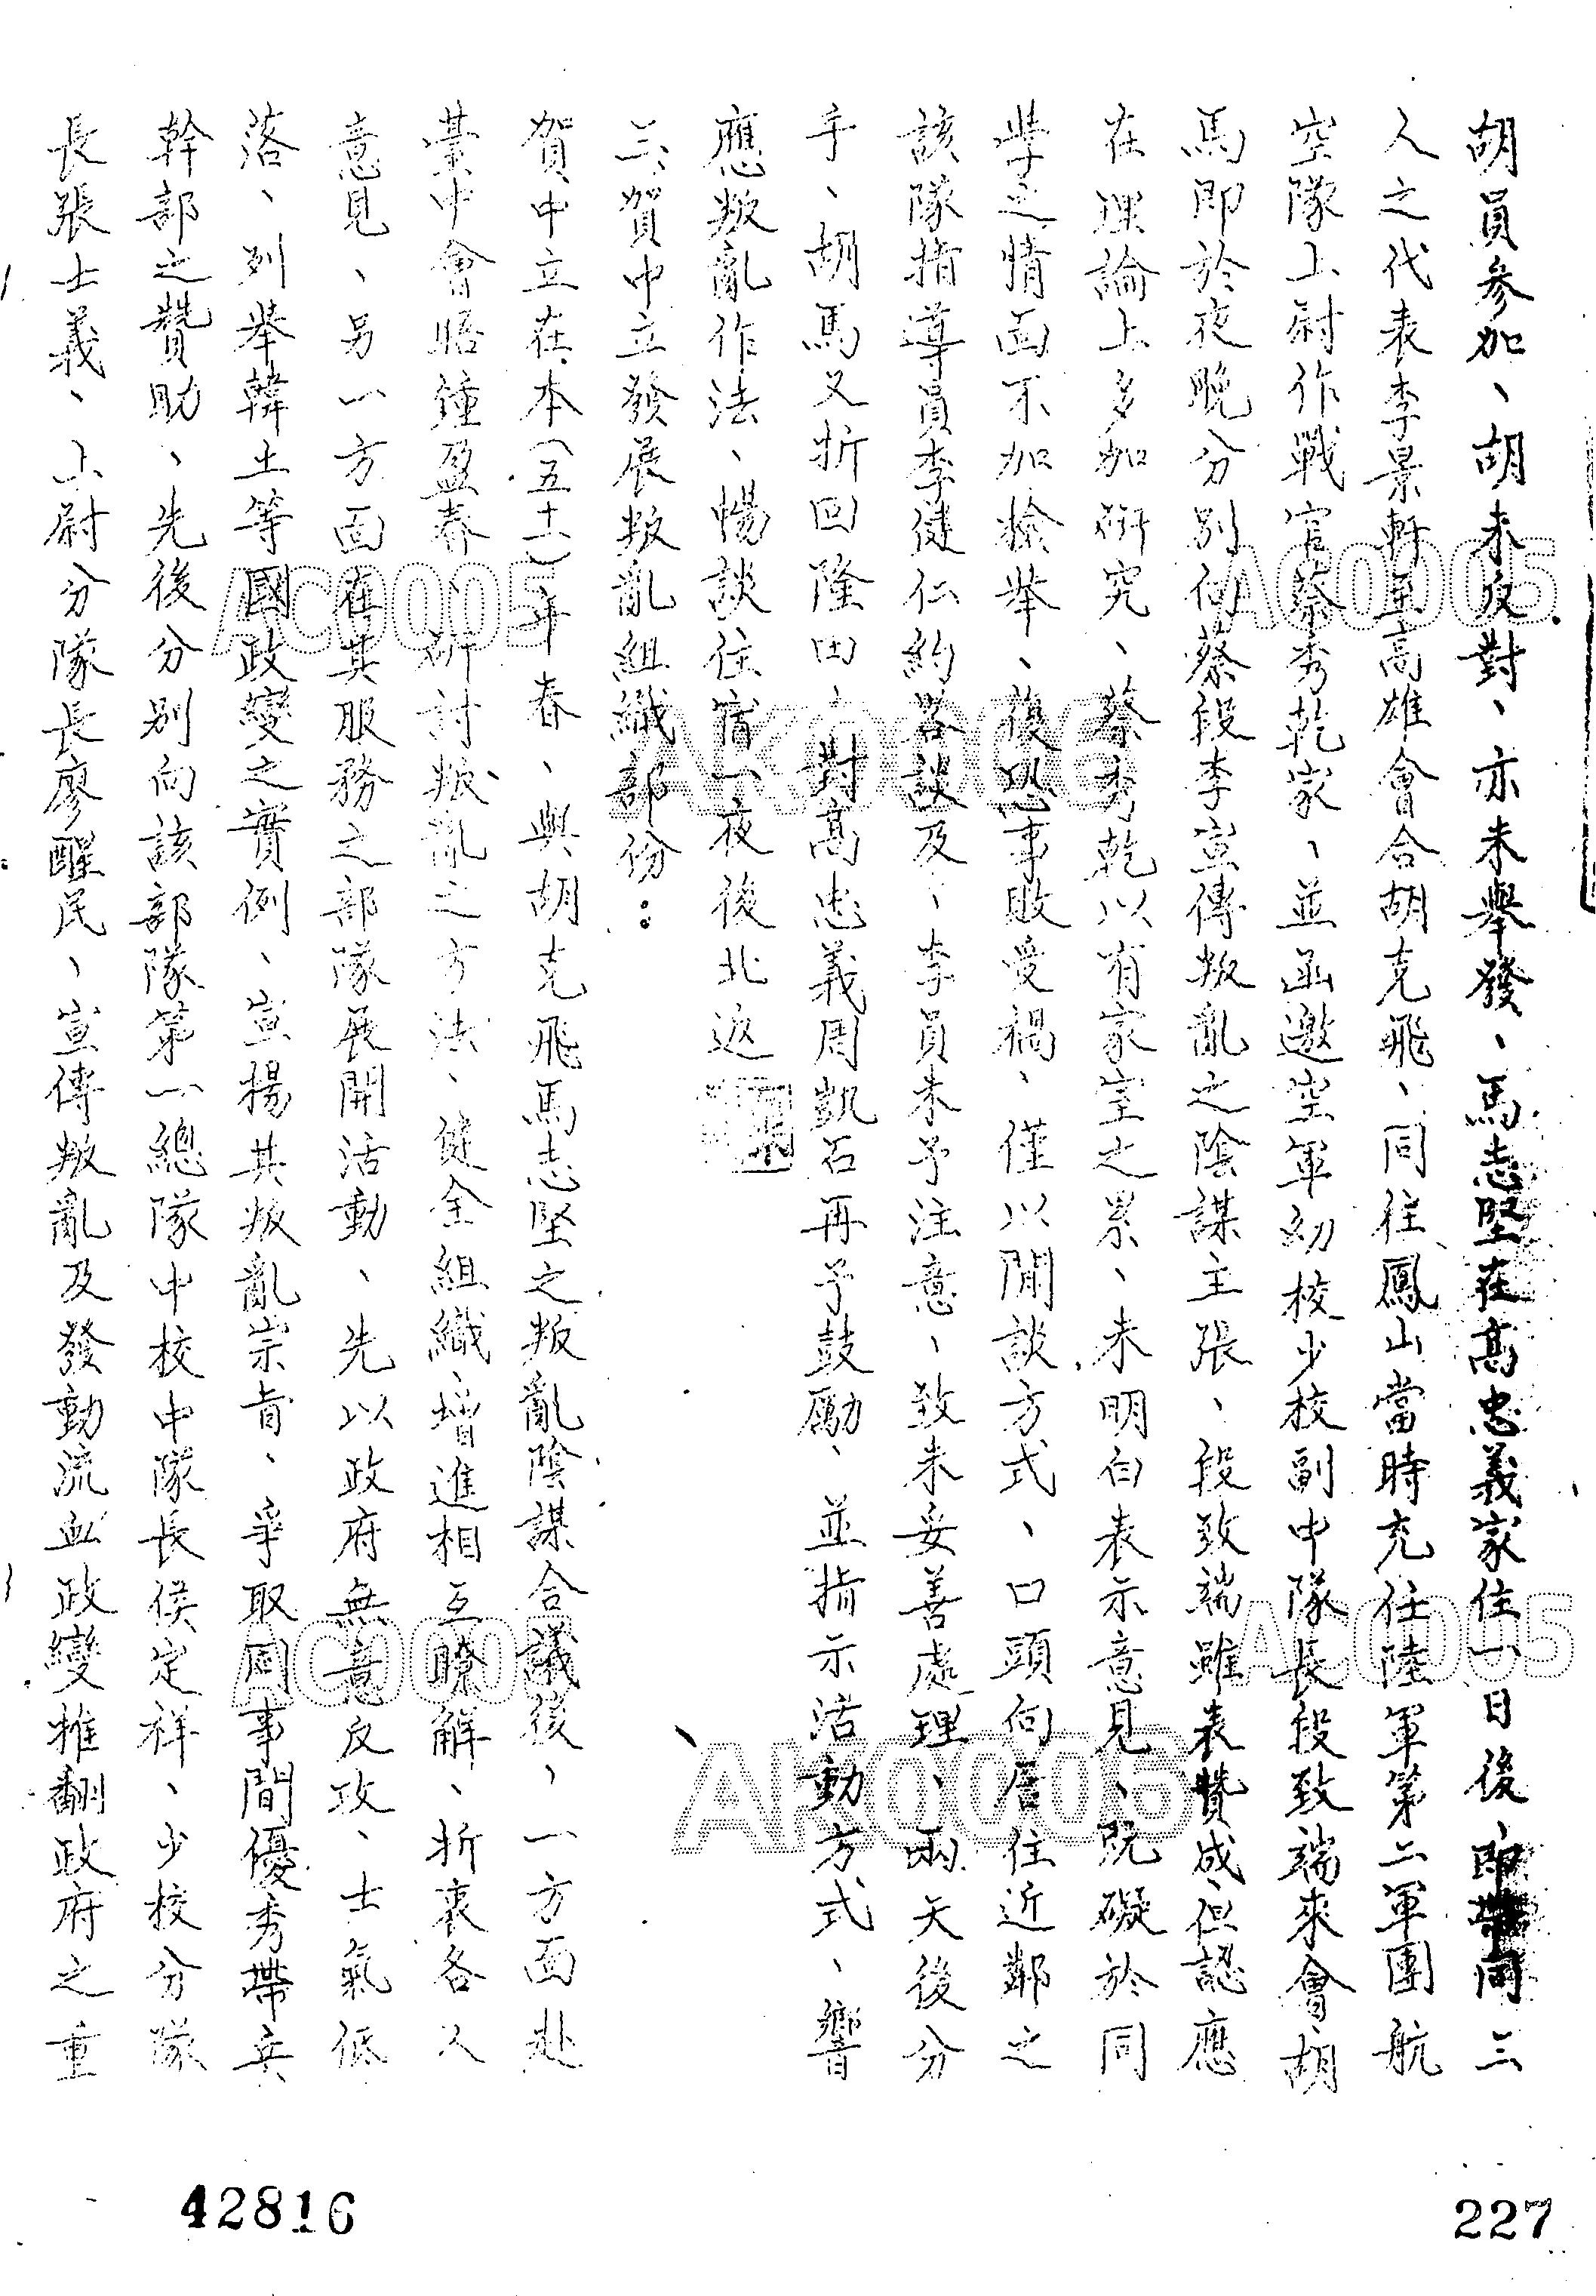 胡員參加、胡未反對、亦未舉發、馬志堅在高忠義家住一日後、即帶同三
人之代表李景軒至高雄會合胡克飛、同往鳳山當時充任陸軍第二軍團航
空隊上尉作戰官蔡秀乾家、並函邀空軍幼校少校副中隊長段致端來會胡
馬即於夜晚分別向蔡段李宣傳叛亂之陰謀主張、段致端雖表贊成但認應
在理論上多加研究、蔡秀乾以有家室之累、未明白表示意見、既礙於同
學之情面不加檢舉、復恐事敗受禍、僅以閒談方式、口頭向居住近鄰之
該隊指導員李健仁約略談及、李員未予注意、致未妥善處理、兩天後分
手、胡馬又折回隆田、對高忠義周凱石再予鼓勵、並指示活動方式、響
應叛亂作法、暢談住宿一夜後北返
三、賀中立發展叛亂組織部份：
賀中立在本(五十一)年春、與胡克飛馬志堅之叛亂陰謀合議後、一方面赴
臺中會晤鍾盈春、研討叛亂之方法、健全組織、增進相互瞭解、折衷各人
意見、另一方面在其服務之部隊展開活動、先以政府無意反攻、士氣低
落、列舉韓土等國政變之實例、宣揚其叛亂宗旨、爭取同事間優秀帶兵
幹部之贊助、先後分別向該部隊第一總隊中校中隊長侯定祥、少校分隊
長張士義、上尉分隊長廖醒民、宣傳叛亂及發動流血政變推翻政府之重
42816
227
AC0005
AC0005
AK0006
AC0005
AC0005
AK0006